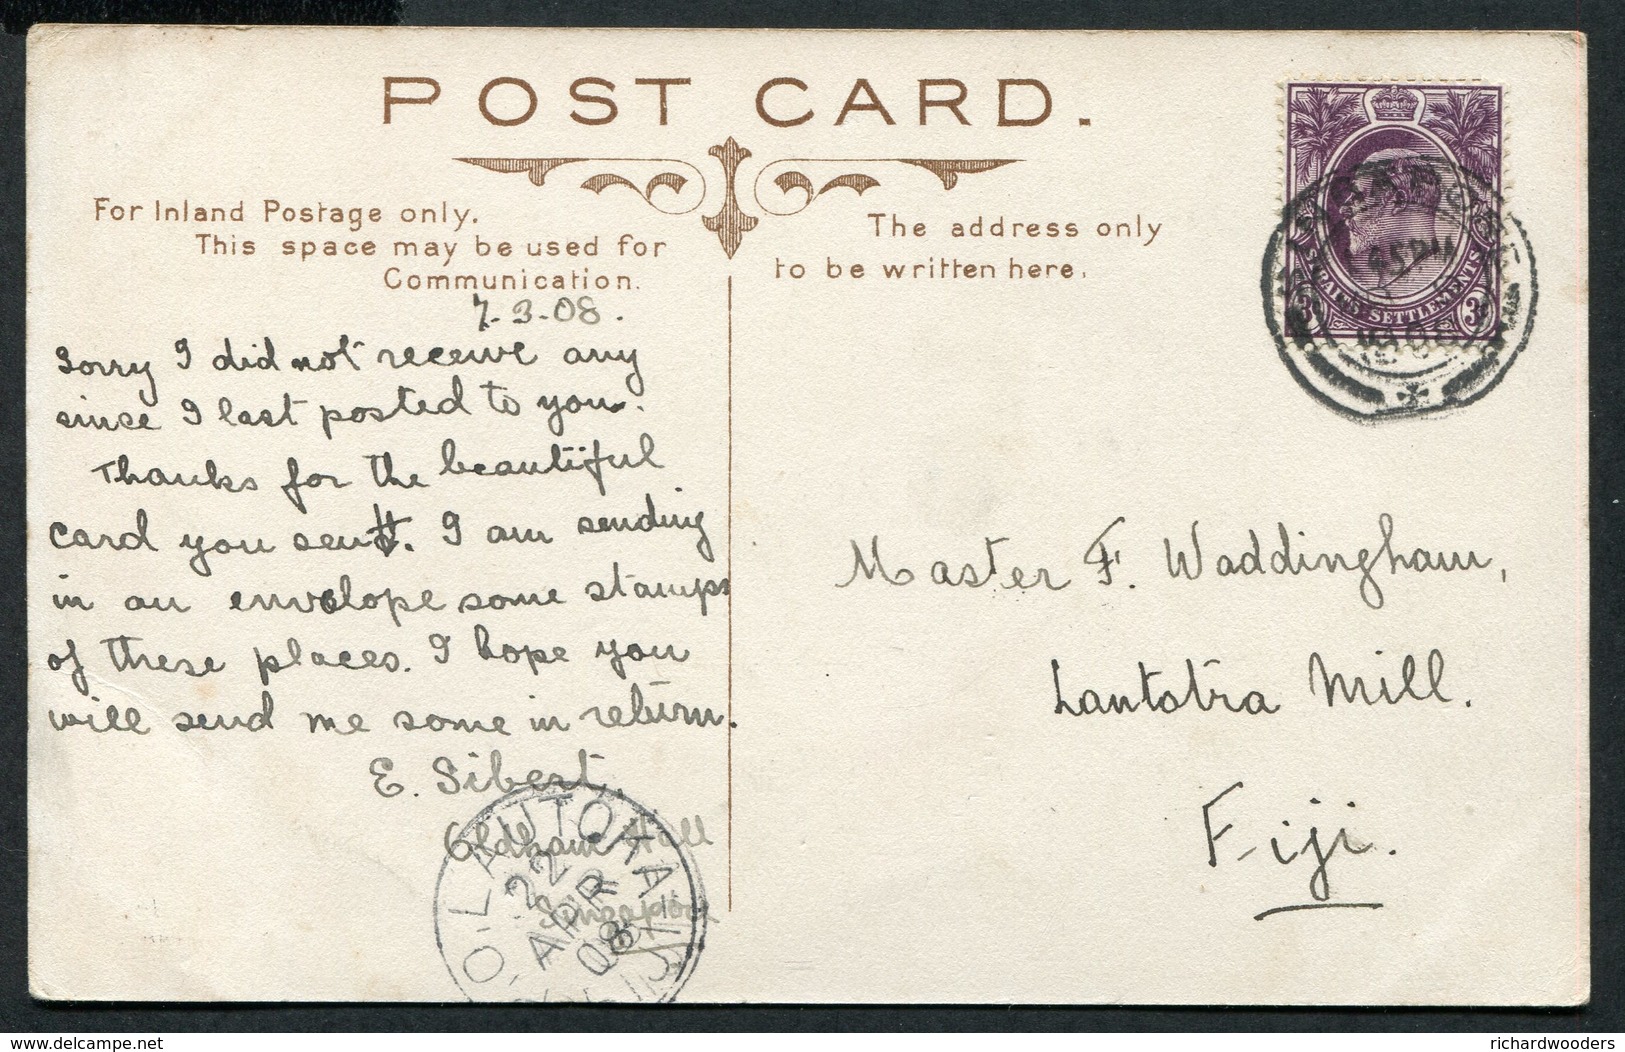 POST CARD.
For Inland Postage only.
This space may be used for
Communication.
The address only
to be written here.
7-3-08.
Sorry I did not receive any
since I last posted to you.
Thanks for the beautiful
card you sent. I am sending
in an envelope some stamps
of these places. I hope you
will send me some in return.
E. Sibert.
Oldham Hall
Singapore
Master F. Waddingham,
Lantotra Mill.
Fiji.
STRAITS SETTLEMENTS
3 3
LAUTOKA
22
APR
08
delcampe.net
richardwooders